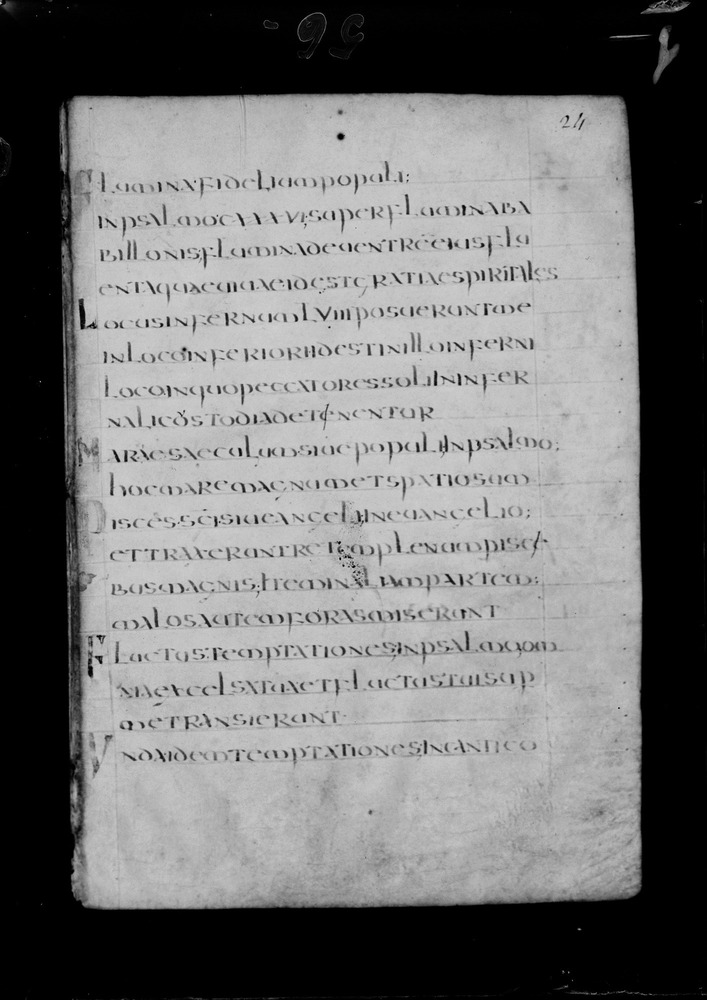 56.
24
Flumina fideliumpopuli;
inpsalmocxxxvi;superfluminaba
billonis;fluminadeuentreeiusflu
entaquaeuiuaeidestgratiaespiritales
Locusinfernumlviiiposueruntme
inlocoinferioriidestinilloinferni
locoinquopeccatoressoliininfer
nalicustodiadetinentur
Maraesaeculumsiuepopuliinpsalmo;
hocmaremagnumetspatiosum
Piscesscisiueangeliineuangelio;
ettraxeruntretemplenumpisci
busmagnis;itemin aliampartem;
malosautemforasmiserunt
Fluctustemptationesinpsalmo;om
niaexcelsatuaetfluctustuisup
metransierunt
Undaidemtemptationesincantico